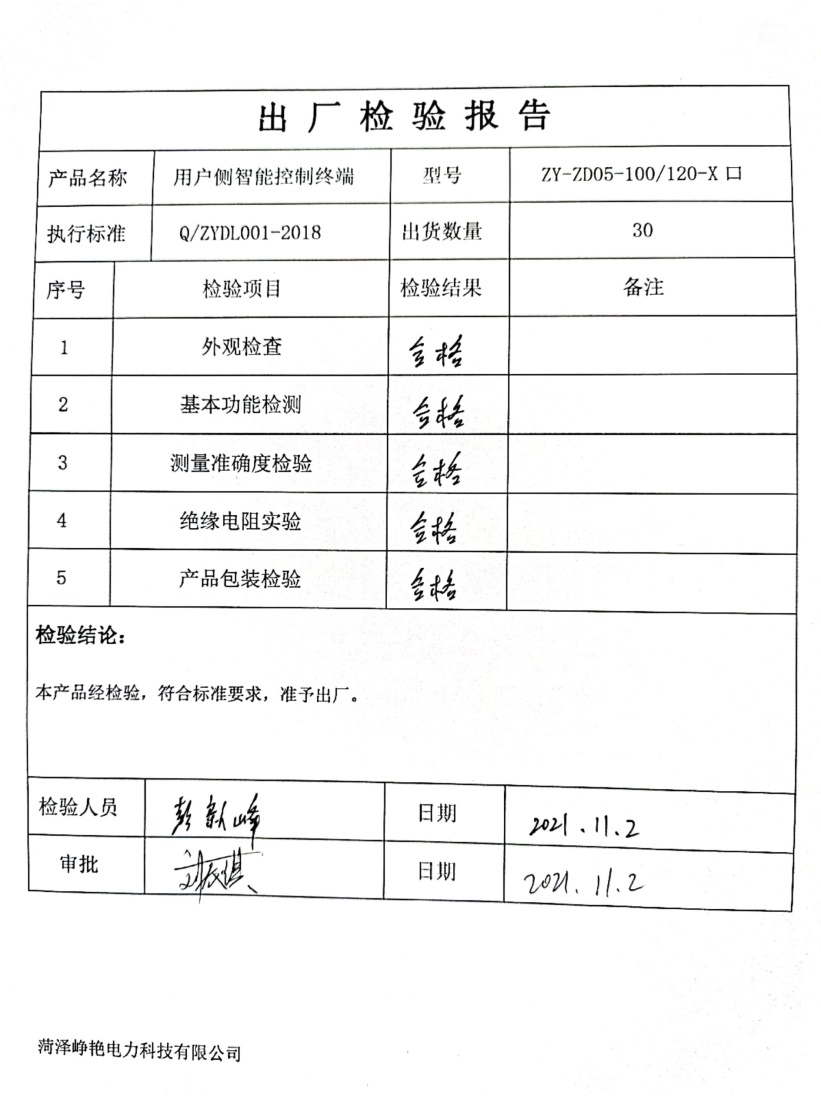 出厂检验报告
产品名称 用户侧智能控制终端 型号 ZY-ZD05-100/120-X口
执行标准 Q/ZYDL001-2018 出货数量 30
序号 检验项目 检验结果 备注
1 外观检查 合格
2 基本功能检测 合格
3 测量准确度检验 合格
4 绝缘电阻实验 合格
5 产品包装检验 合格
检验结论：
本产品经检验，符合标准要求，准予出厂。
检验人员 彭新峰 日期 2021.11.2
审批 日期 2021.11.2
菏泽峥艳电力科技有限公司